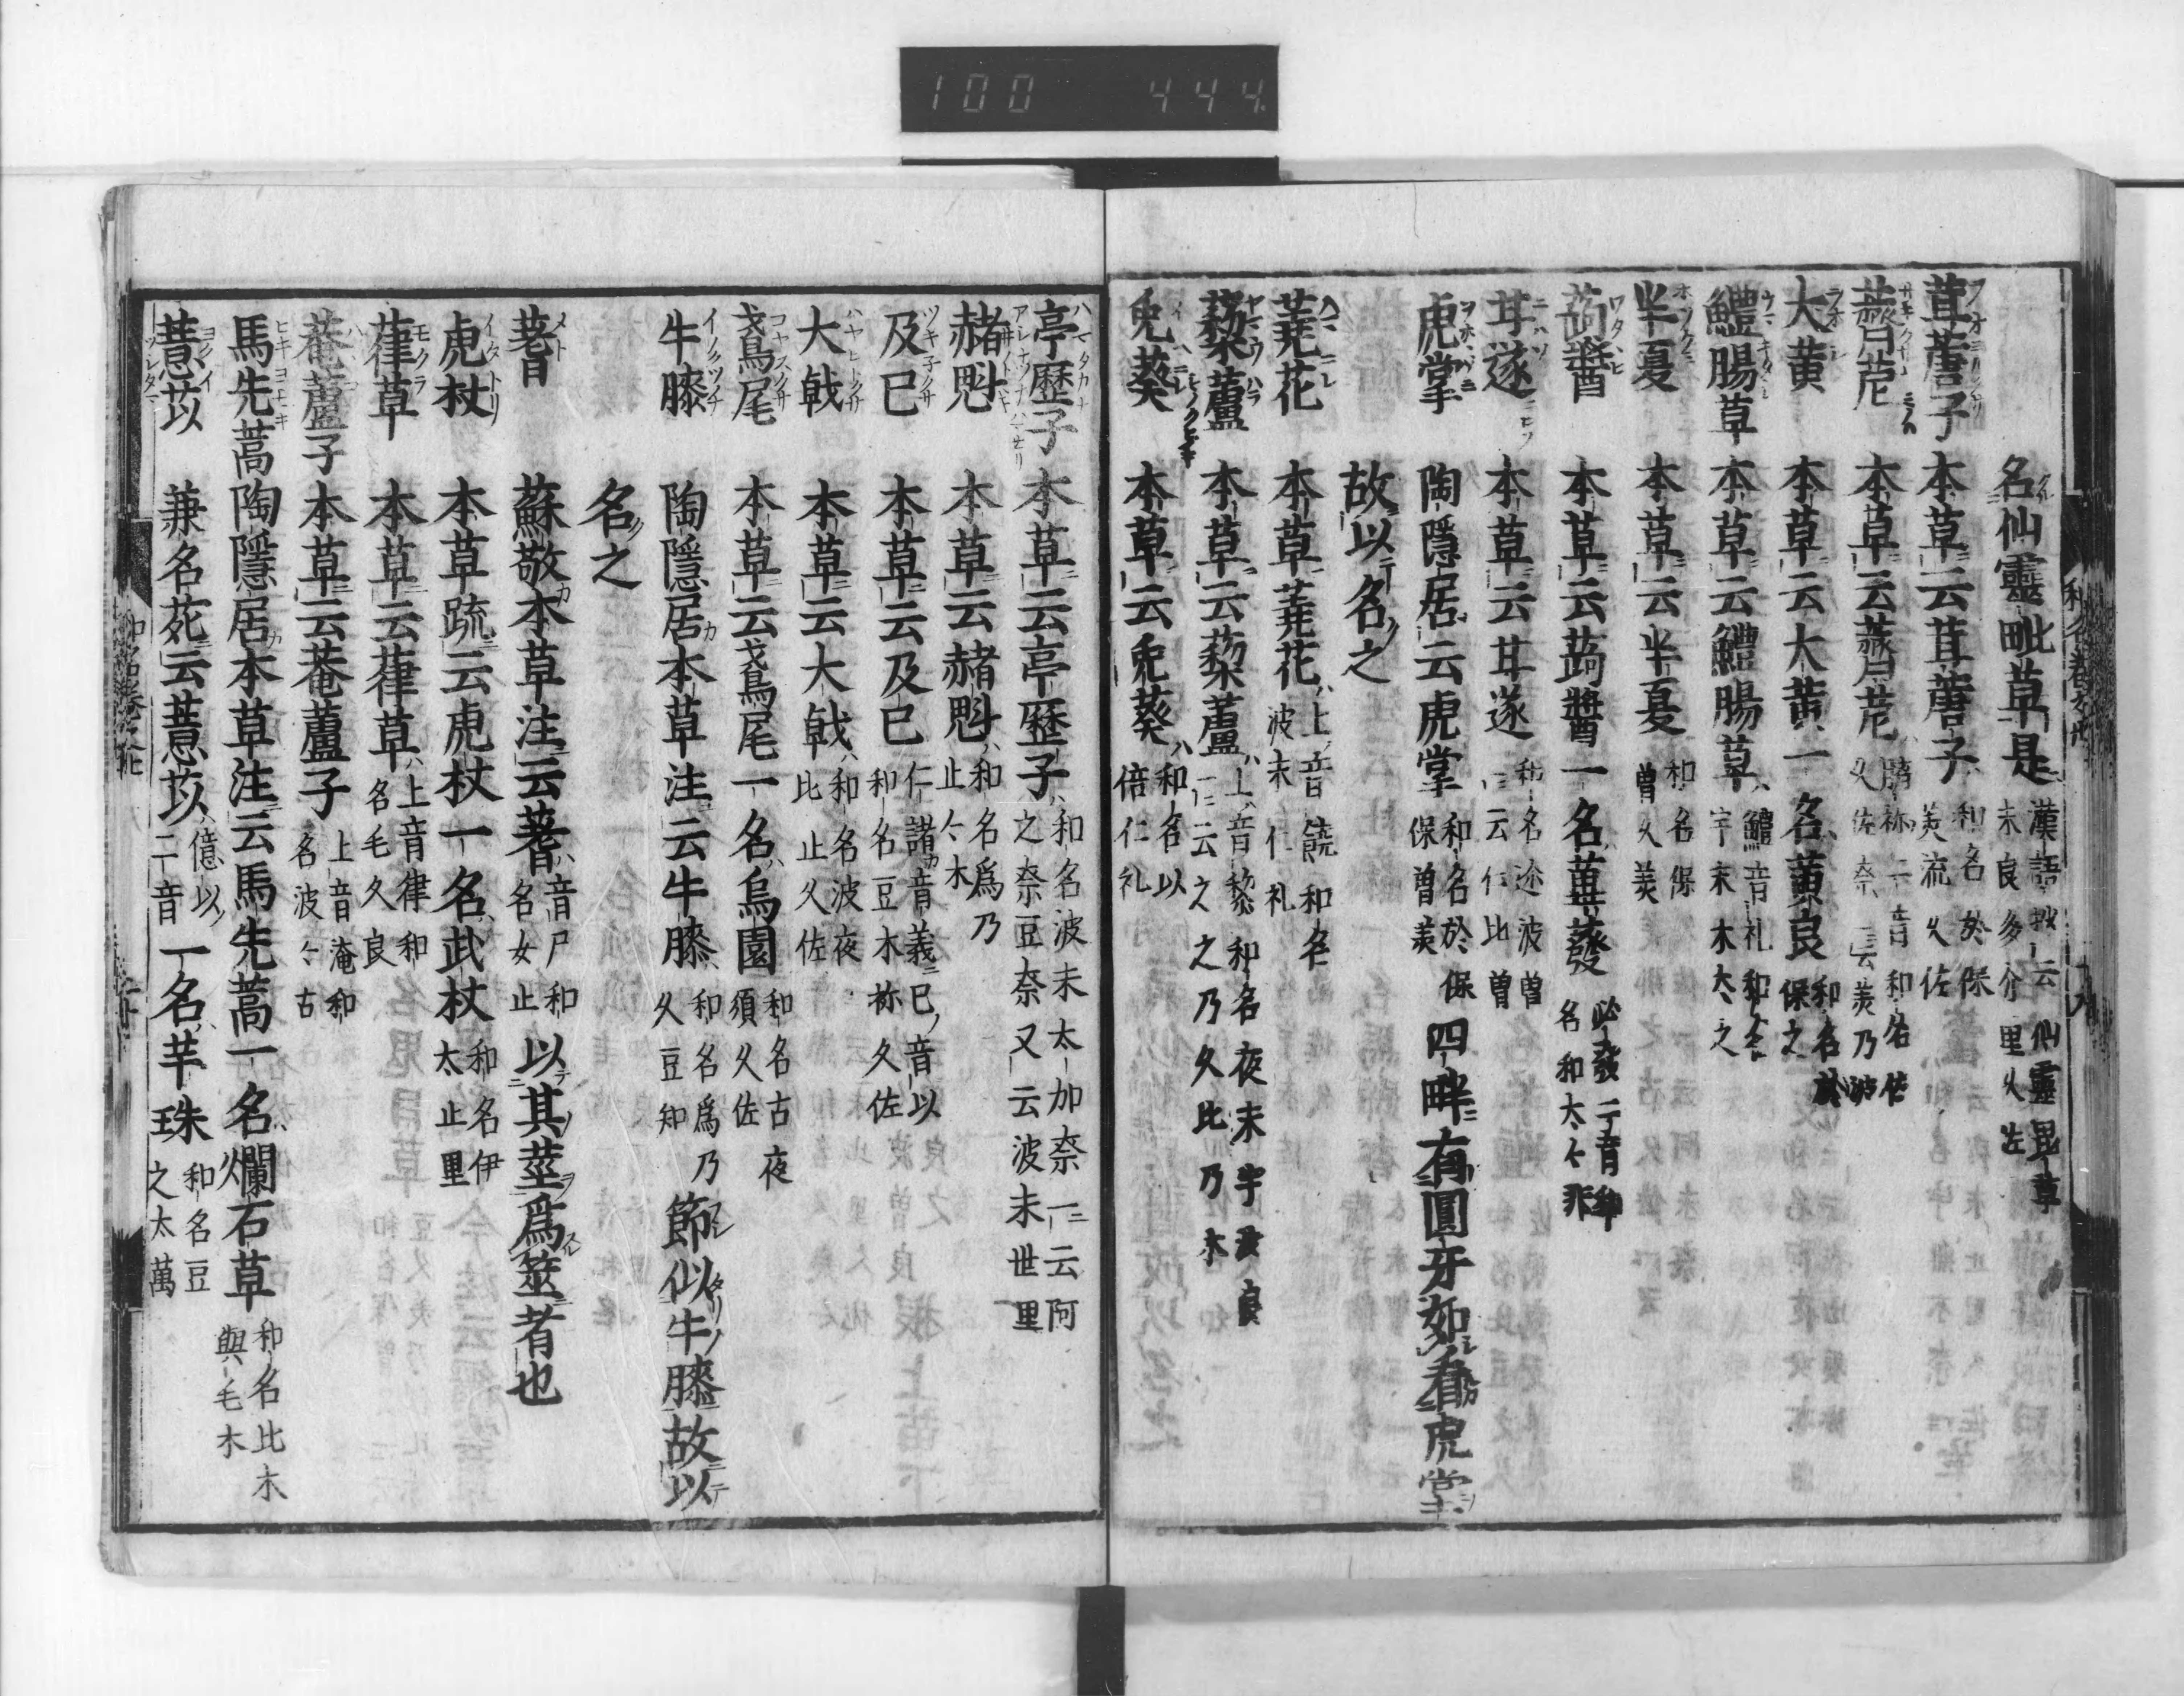 100 444
名仙靈毗草是 漢語抄云仙靈毘草 末良多介里久佐
茸蓎子 本草云茸蓎子 和名於保美流久佐
薺苨 本草云薺苨 臍祢二音和名佐久佐奈一云美乃波
大黄 本草云大黄一名黄良 和名於保之
鱧腸草 本草云鱧腸草 鱧音礼和名宇末木太之
半夏 本草云半夏 和名保曽久美
蒟醬 本草云蒟醬一名蓽蕟 必發二音和名和太々非
甘遂 本草云甘遂 和名迩波曽一云仁比曽
虎掌 陶隱居云虎掌 和名於保保曽美 四畔有圓牙如看虎掌
故以名之
蕘花 本草蕘花 上音饒和名波末仁礼
藜蘆 本草云藜蘆 上音黎和名夜末宇波良一云之之乃久比乃木
兎葵 本草云兎葵 和名以倍仁礼
亭歷子 本草云亭歷子 和名波末太加奈一云阿之奈豆奈又云波末世里
赭魁 本草云赭魁 和名爲乃止々木
及已 本草云及已 仁諝音義已音以和名豆木祢久佐
大戟 本草云大戟 和名波夜比止久佐
鳶尾 本草云鳶尾一名烏園 和名古夜須久佐
牛膝 陶隱居本草注云牛膝 和名爲乃久豆知 節似牛膝故以
名之
蓍 蘇敬本草注云蓍 音尸和名女止 以其莖爲筮者也
虎杖 本草疏云虎杖一名武杖 和名伊太止里
葎草 本草云葎草 上音律和名毛久良
菴蘆子 本草云菴蘆子 上音淹和名波々古
馬先蒿 陶隱居本草注云馬先蒿一名爛石草 和名比木與毛木
薏苡 兼名苑云薏苡 億以二音 一名芉珠 和名豆之太萬